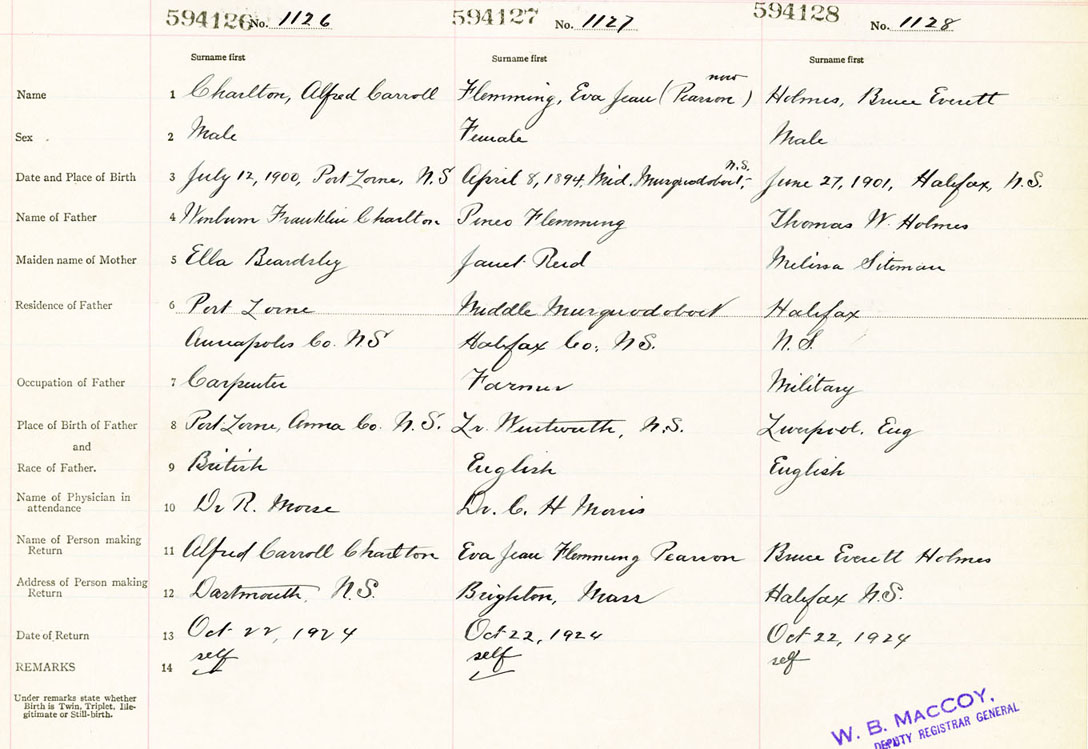 594126 No. 1126 594127 No. 1127 594128 No. 1128
Surname first Surname first Surname first
now
Name 1 Charlton, Alfred Carroll Flemming, Eva Jean (Pearson) Holmes, Bruce Everett
Sex 2 Male Female Male
N.S.
Date and Place of Birth 3 July 12, 1900, Port Lorne, N.S April 8, 1894, Mid. Musquodoboit, June 27, 1901, Halifax, N.S.
Name of Father 4 Franklin Charlton Pineo Flemming Thomas W. Holmes
Maiden name of Mother 5 Ella Beardsley Janet Reid Melissa Siteman
Residence of Father 6 Port Lorne Middle Musquodoboit Halifax
Annapolis Co. NS Halifax Co; N.S. N.S.
Occupation of Father 7 Carpenter Farmer Military
Place of Birth of Father 8 Port Lorne, Anna Co. N.S. Lr. Wentworth, N.S. Liverpool. Eng
and
Race of Father. 9 British English English
Name of Physician in
attendance 10 Dr R. Morse Dr. C. H Morris
Name of Person making
Return 11 Alfred Carroll Charlton Eva Jean Flemming Pearson Bruce Everett Holmes
Address of Person making
Return 12 Dartmouth, N.S. Brighton, Mass Halifax N.S.
Date of Return 13 Oct 22, 1924 Oct 22, 1924 Oct 22, 1924
REMARKS 14 self self self
Under remarks state whether
Birth is Twin, Triplet, Ille-
gitimate or Still-birth.
W. B. MACCOY,
DEPUTY REGISTRAR GENERAL